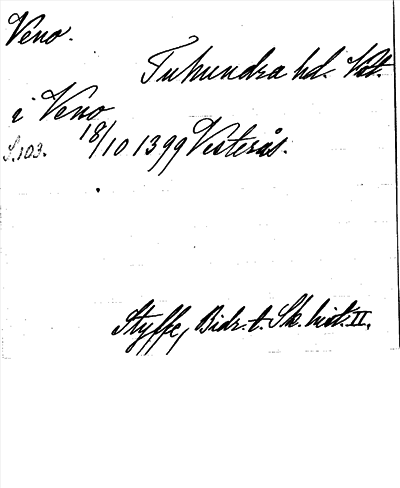 Veno.
Tuhundra hd. Vstm.
i Veno
S. 103. 18/10 1399 Vesterås.
Styffe, Bidr. t. Sk. hist. II.